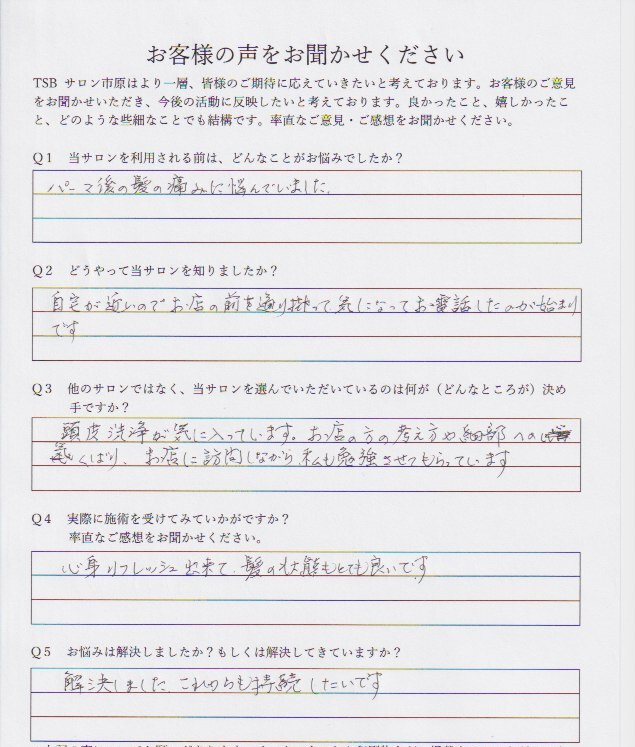 お客様の声をお聞かせください
TSB サロン市原はより一層、皆様のご期待に応えていきたいと考えております。お客様のご意見
をお聞かせいただき、今後の活動に反映したいと考えております。良かったこと、嬉しかったこ
と、どのような些細なことでも結構です。率直なご意見・ご感想をお聞かせください。
Q1 当サロンを利用される前は、どんなことがお悩みでしたか?
パーマ後の髪の痛みに悩んでいました.
Q2 どうやって当サロンを知りましたか?
自宅が近いのでお店の前を通り掛って気になってお電話したのが始まり
です
Q3 他のサロンではなく、当サロンを選んでいただいているのは何が(どんなところが)決め
手ですか?
頭皮洗浄が気に入っています。お店の方の考え方や細部への
気くばり、お店に訪問しながら私も勉強させてもらっています
Q4 実際に施術を受けてみていかがですか?
率直なご感想をお聞かせください。
心身リフレッシュ出来て、髪の状態もとても良いです
Q5 お悩みは解決しましたか?もしくは解決してきていますか?
解決しました これからも持続したいです